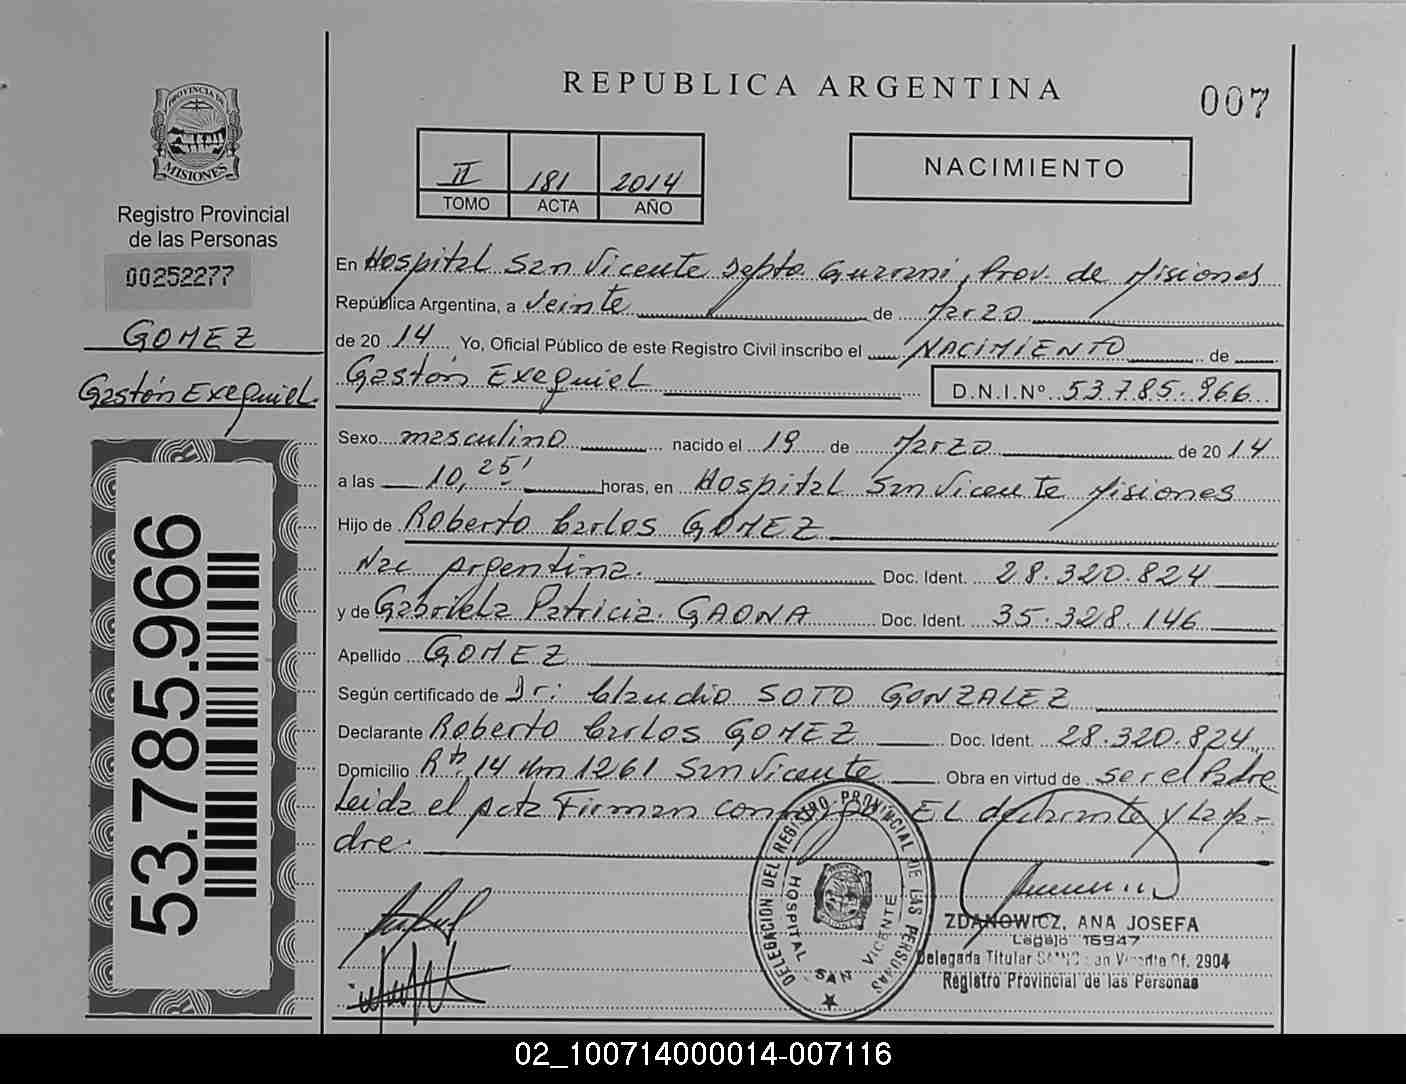 REPUBLICA ARGENTINA
007
PROVINCIA DE
MISIONES
Registro Provincial
de las Personas
00252277
GOMEZ
Gastón Exequiel.
53.785.966
II 181 2014
TOMO ACTA AÑO
NACIMIENTO
En Hospital San Vicente Depto Guaraní, Prov. de Misiones
República Argentina, a veinte de Marzo
de 20 14 Yo, Oficial Público de este Registro Civil inscribo el NACIMIENTO de
Gastón Exequiel D.N.I.Nº 53.785.966
Sexo masculino nacido el 19 de Marzo de 2014
a las 10,25' horas, en Hospital San Vicente Misiones
Hijo de Roberto Carlos GOMEZ
Nac Argentina. Doc. Ident. 28.320.824
y de Gabriela Patricia GAONA Doc. Ident. 35.328.146
Apellido GOMEZ
Según certificado de Dr: Claudio SOTO GONZALEZ
Declarante Roberto Carlos GOMEZ Doc. Ident. 28.320.824
Domicilio Rta 14 Km 1261 San Vicente Obra en virtud de ser el Padre
Leida el Acta Firman conmigo EL declarante y La Ma-
dre.
DELEGACION DEL REGISTRO PROVINCIAL DE LAS PERSONAS
HOSPITAL SAN VICENTE
ZDANOWICZ, ANA JOSEFA
Legajo 16947
Delegada Titular Of. 2904
Registro Provincial de las Personas
02_100714000014-007116